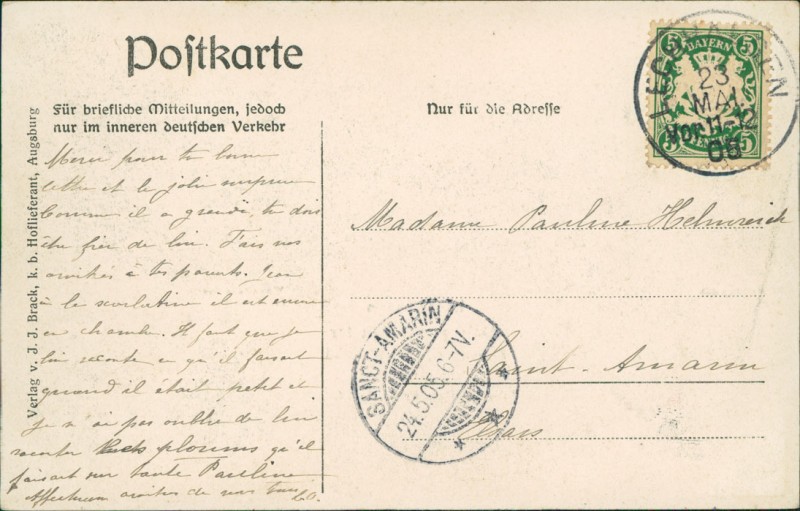 Postkarte
Für briefliche Mitteilungen, jedoch
nur im inneren deutschen Verkehr
Nur für die Adresse
Verlag v. J. J. Brack, k. b. Hoflieferant, Augsburg
5 BAYERN 5
23
MAI
VOR. 11-12
05
Merci pour ta bonne
lettre et la jolie surprise
Comme il a grandi, tu dois
être fier de lui. Fais nos
amitiés à tes parents. Jean
a la scarlatine il est encore
en chambre. Il faut que je
lui raconte ce qu'il faisait
quand il était petit et
je n'ai pas oublié de lui
raconter plounis qu'il
faisait sur tante Pauline
amitiés de nous tous
Madame Pauline Helmreich
Saint-Amarin
Elsass
SANCT-AMARIN
24.5.05.6-7V.